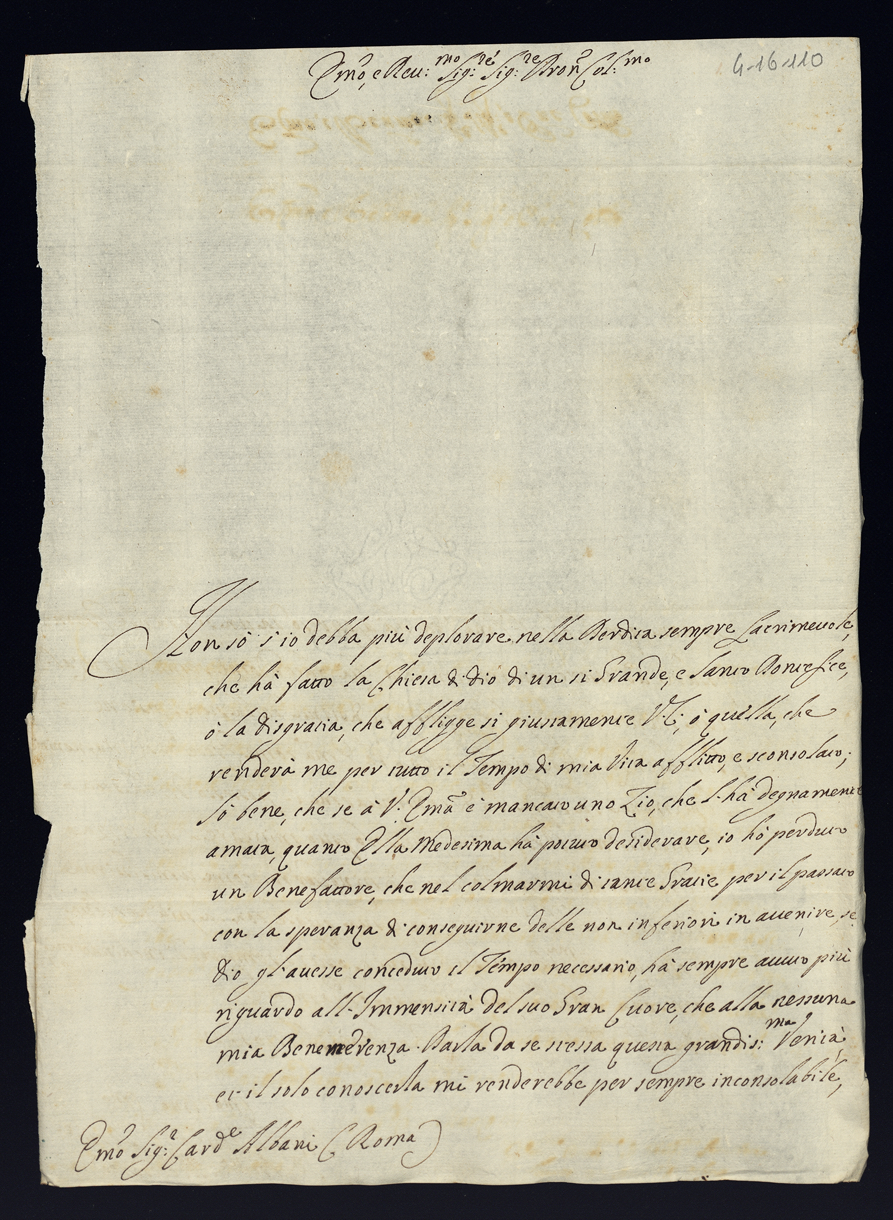 4-16-110
Emo, e Reu:mo Sig:re Sig:re Pron Col:mo
Non sò s'io debba più deplorare nella Perdita sempre Lacrimeuole,
che hà fatto la Chiesa di Dio di un si Grande, e Santo Pontefice,
ò la disgratia, che affligge si giustamente V: E:, ò quella, che
renderà me per tutto il Tempo di mia Vita afflitto, e sconsolato;
Sò bene, che se à V: Emã è mancato uno Zio, che l'hà degnamente
amata, quanto Ella Medesima hà potuto desiderare, io hò perduto
un Benefattore, che nel colmarmi di tante Gratie per il passato
con la speranza di conseguirne delle non inferiori in auenire, se
Dio gl'auesse conceduto il Tempo necessario, hà sempre auuto più
riguardo all'Immensità del suo Gran Cuore, che alla nessuna
mia Benemerenza. Parla da se stessa questa grandis:ma Verità,
et il solo conoscerla mi renderebbe per sempre inconsolabile,
Emo Sig:r Card:e Albani (Roma)